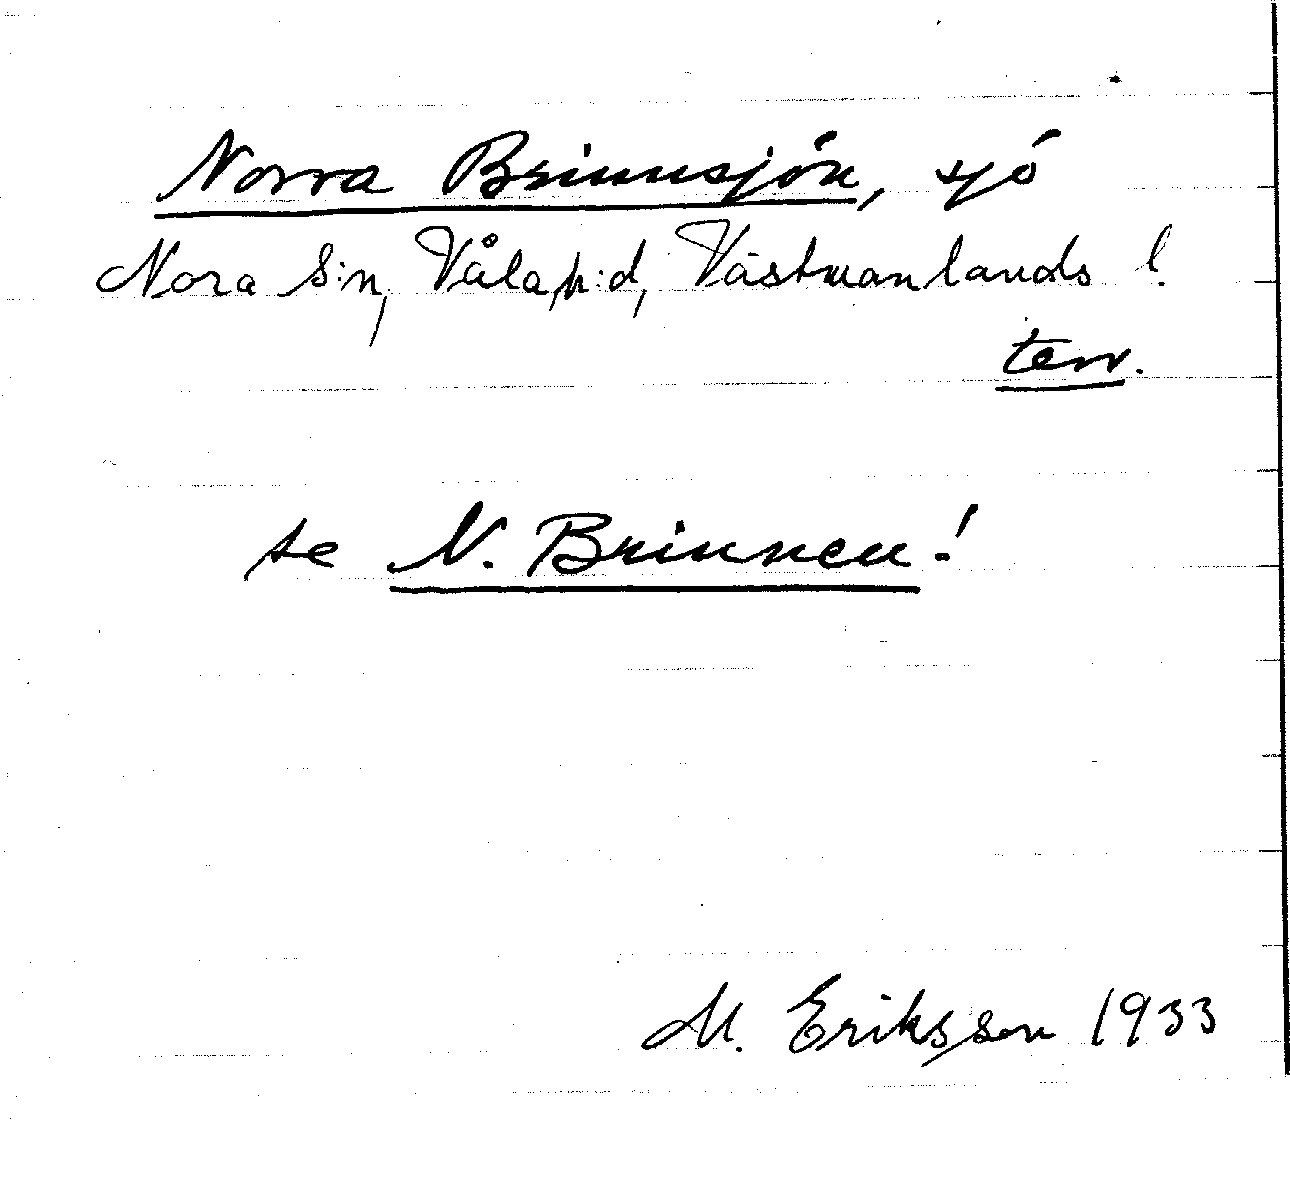 Norra Brinnsjön, sjö
Nora s:n, Våla h:d, Västmanlands l.
terr.
se N. Brinnen!
M. Eriksson 1933